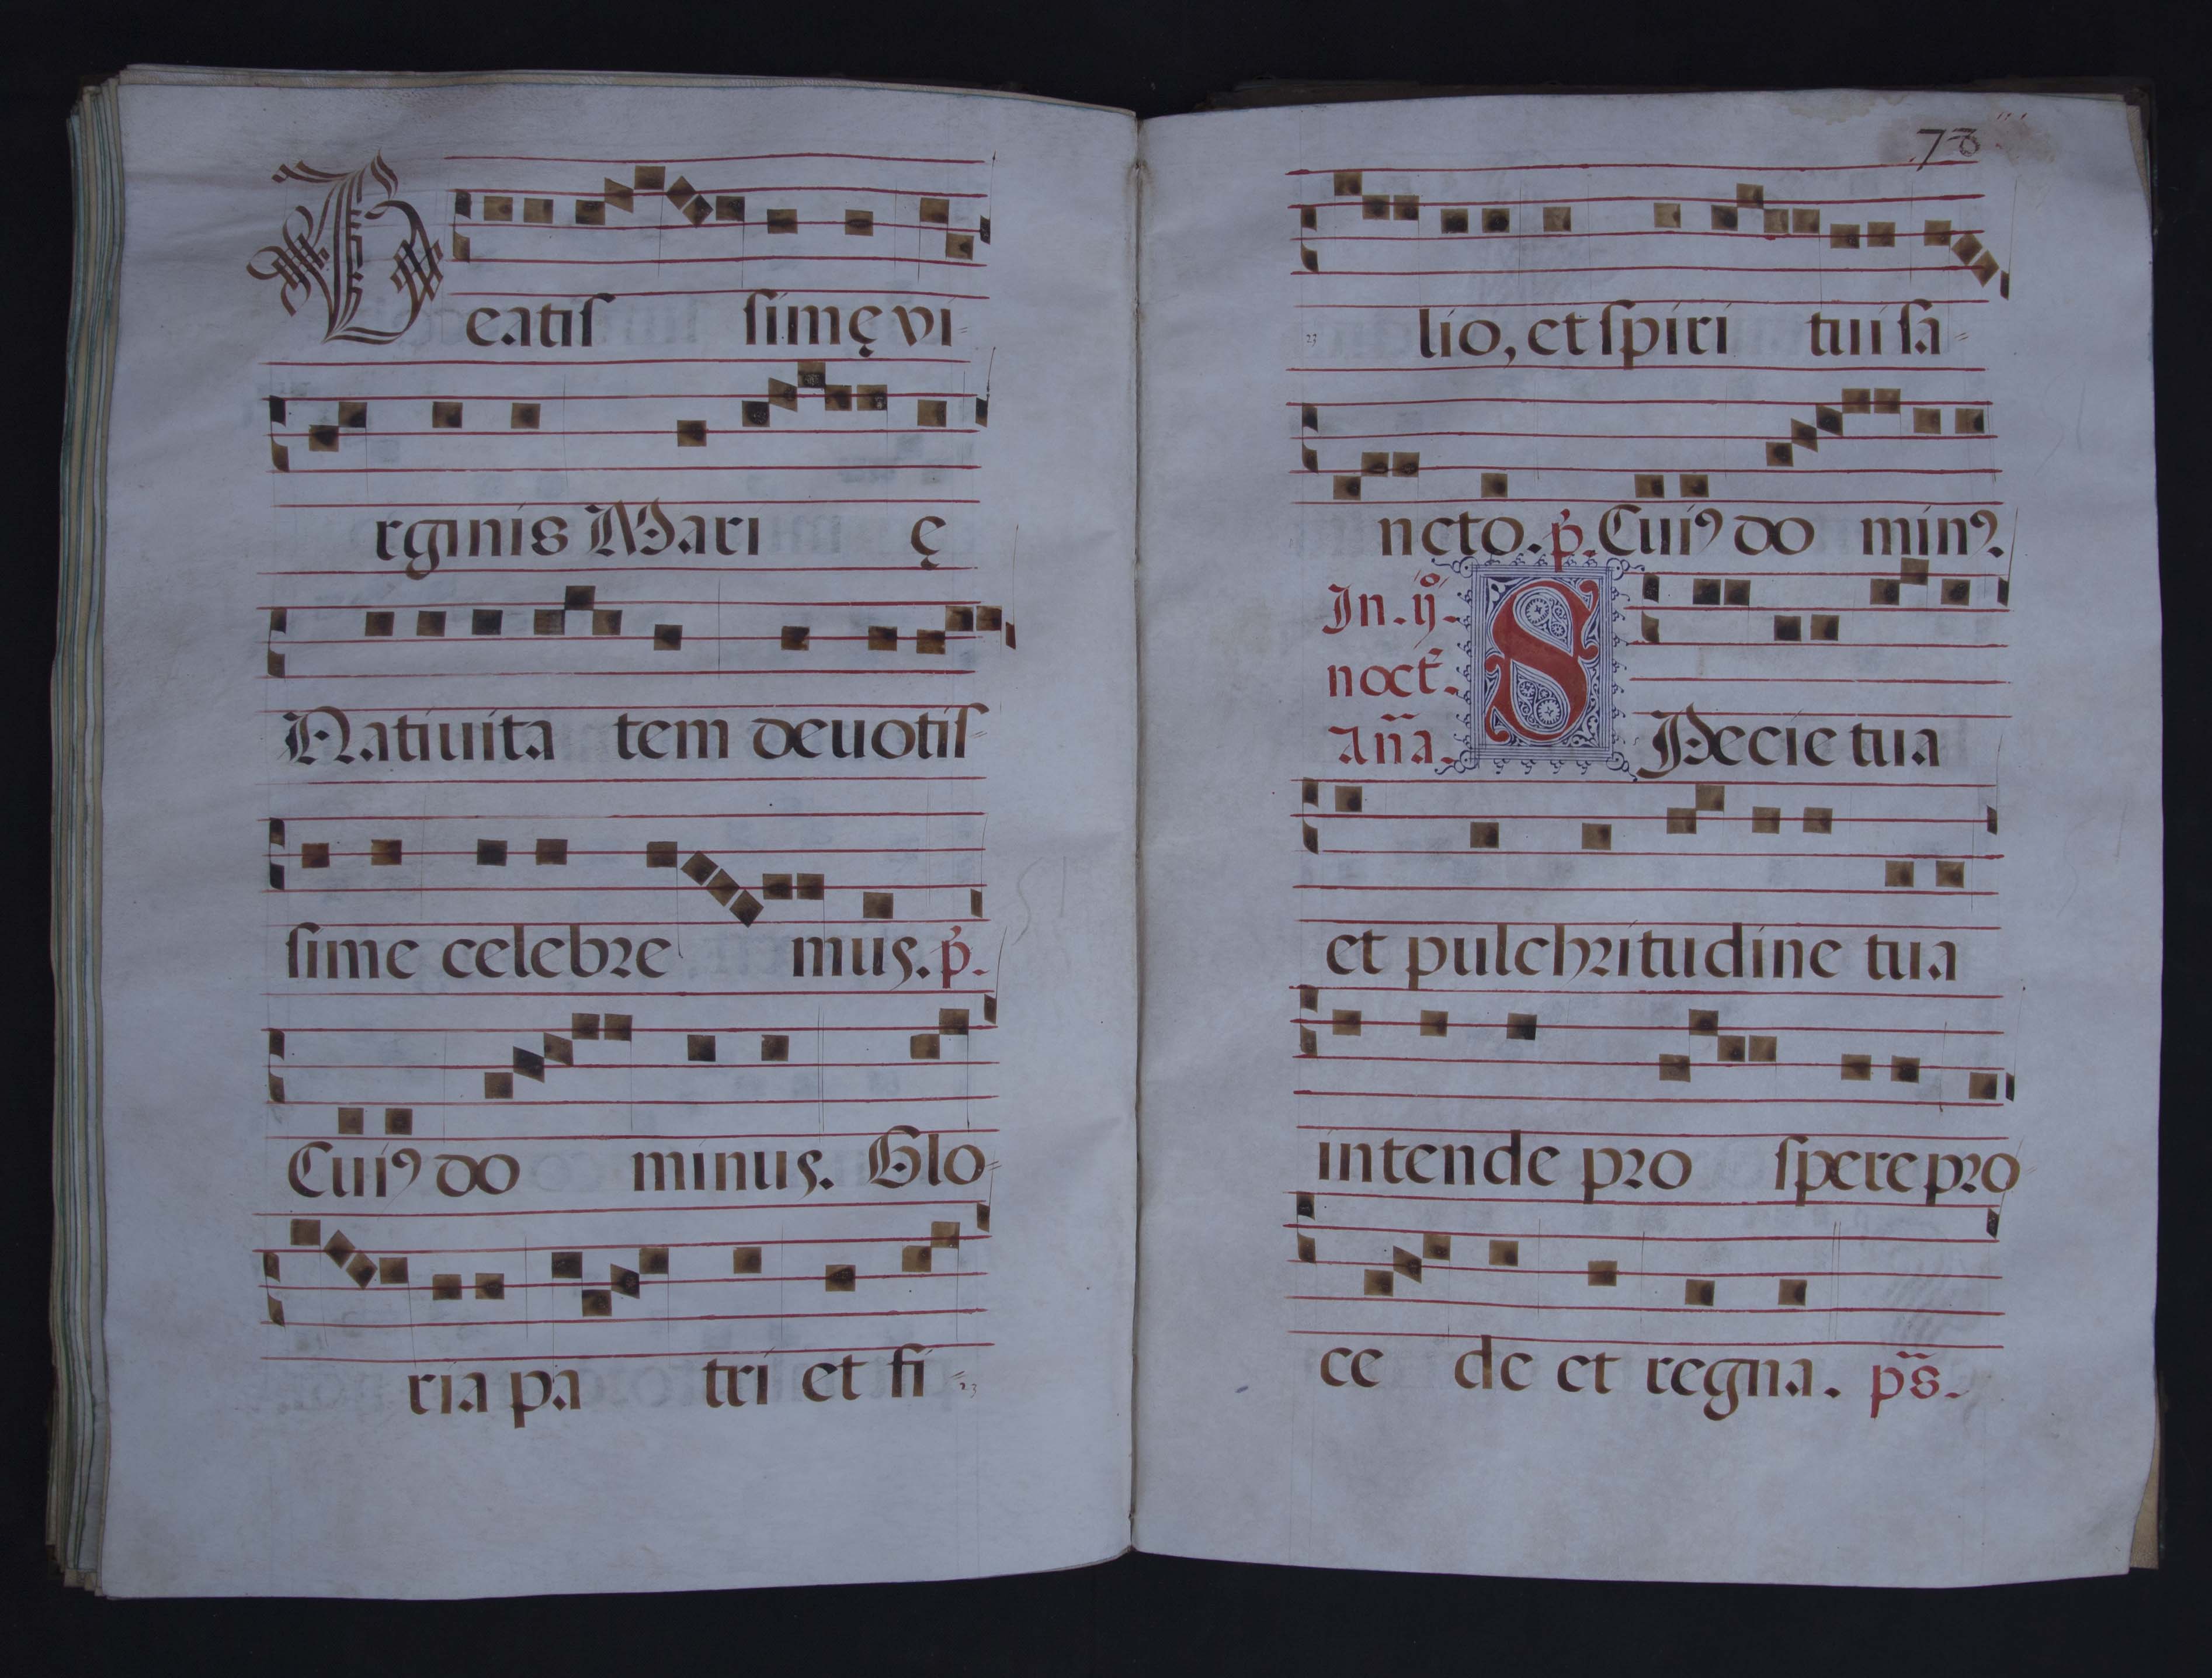 Beatiſ ſimę vi=
rginis Mari ę
Natiuita tem deuotiſ=
ſime celebꝛe muſ. p̃.
Cuiꝰ do minuſ. Glo=
ria pa tri et fi=
73
lio, et ſpiri tui ſa=
ncto. p̃. Cuiꝰ do minꝰ.
In. ij.º
noct̃.
Añã.
SPecie tua
et pulchꝛitudine tua
intende pꝛo ſpere pꝛo
ce de et regna. ps̃.